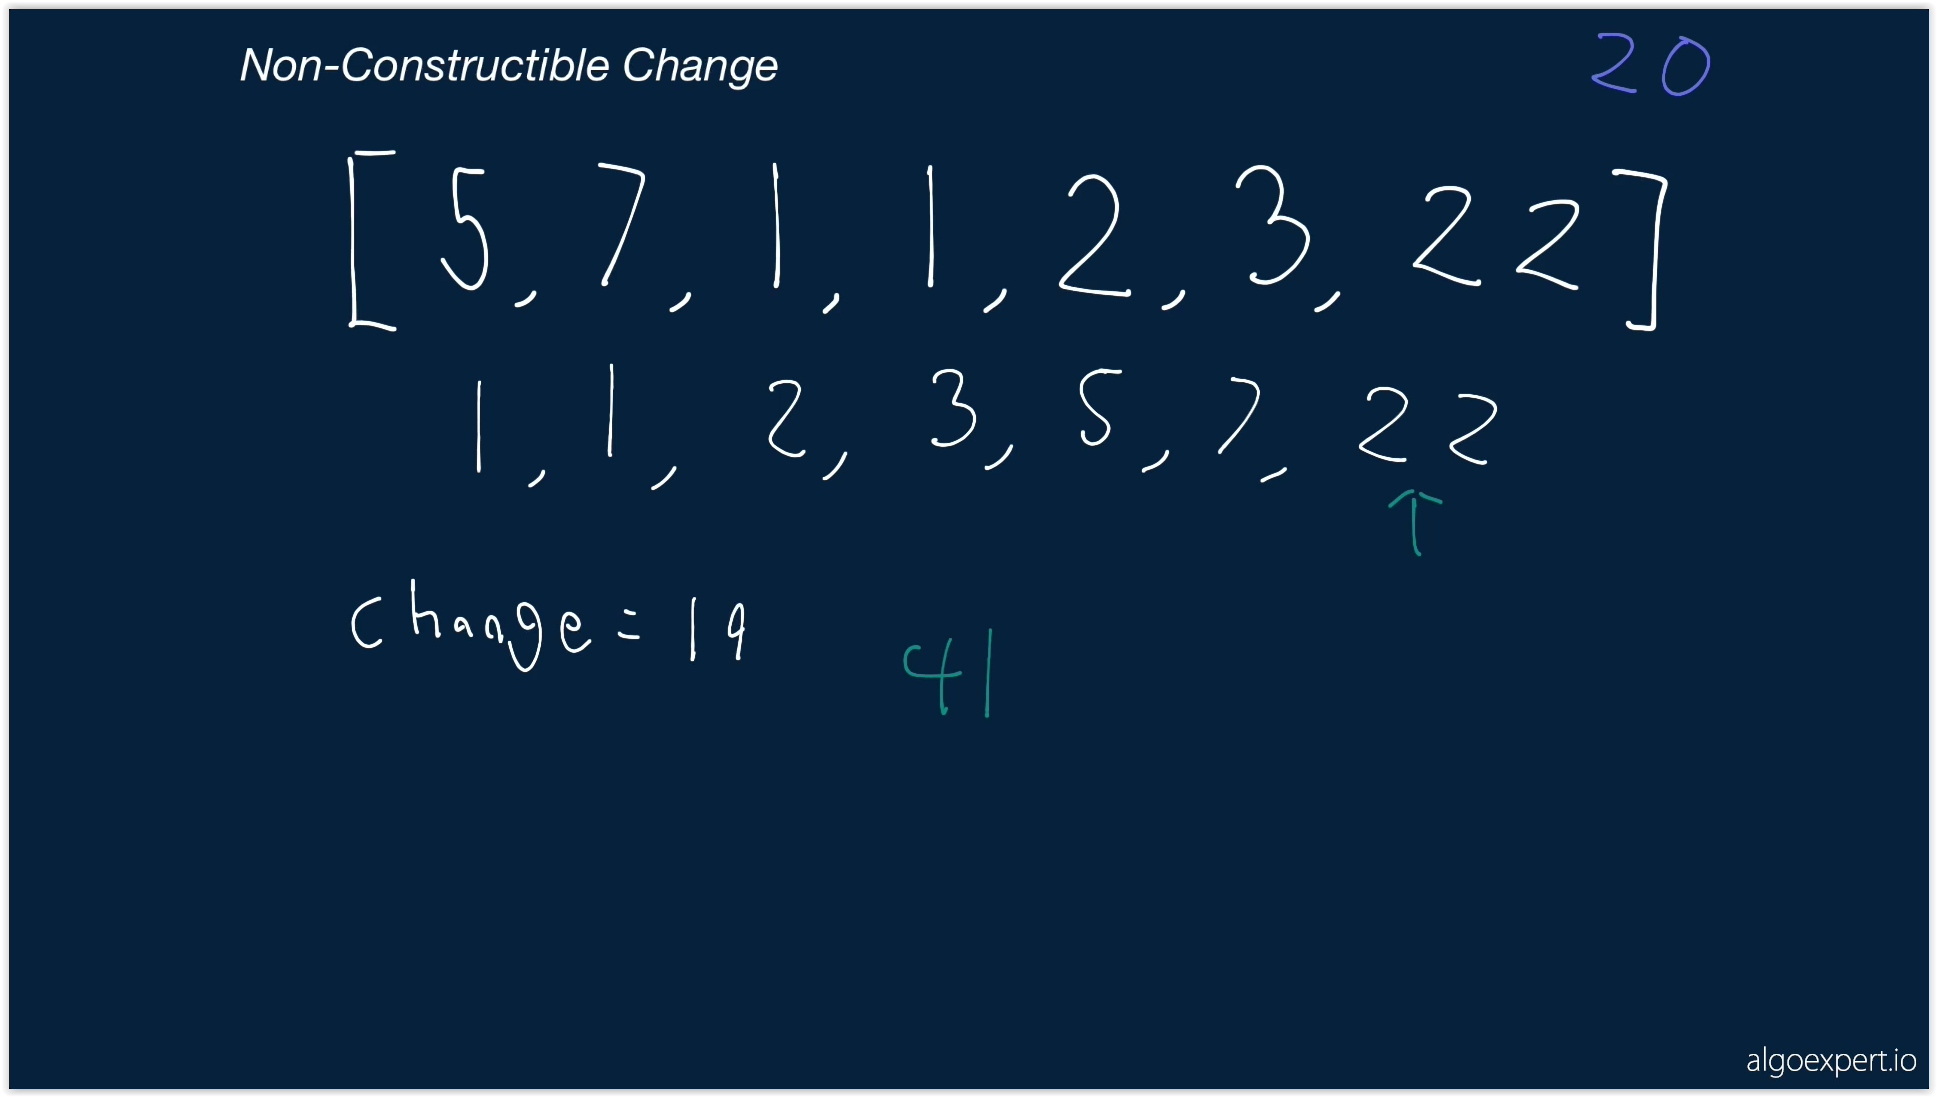 Non-Constructible Change
20
[5, 7, 1, 1, 2, 3, 22]
1, 1, 2, 3, 5, 7, 22
↑
change = 19
41
algoexpert.io